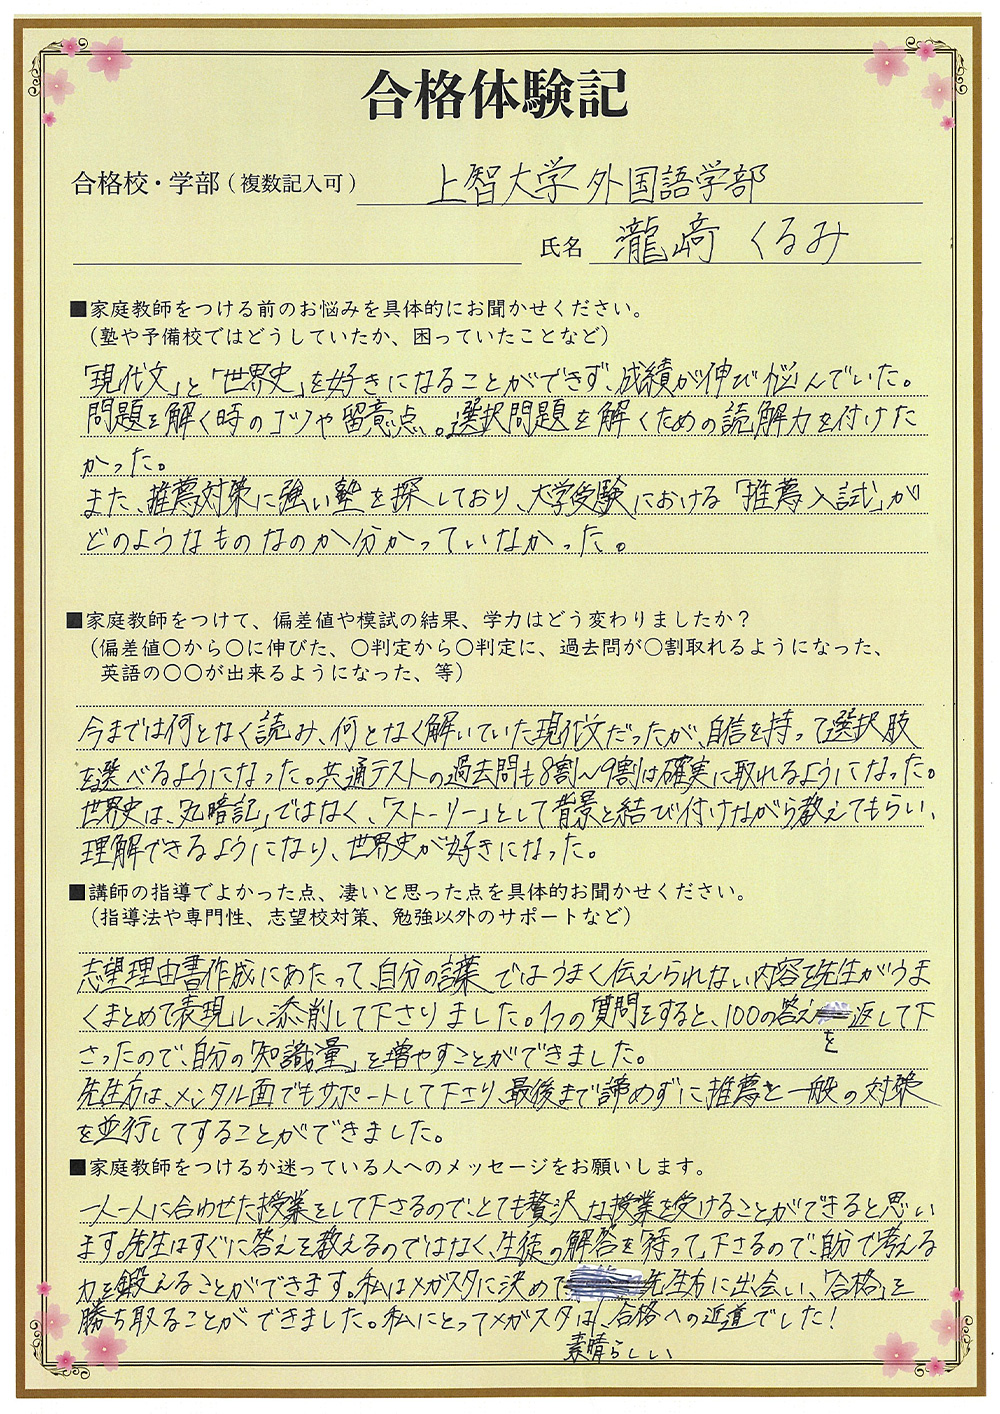 合格体験記
合格校・学部（複数記入可） 上智大学 外国語学部
氏名 瀧﨑 くるみ
■家庭教師をつける前のお悩みを具体的にお聞かせください。
（塾や予備校ではどうしていたか、困っていたことなど）
「現代文」と「世界史」を好きになることができず、成績が伸び悩んでいた。
問題を解く時のコツや留意点、。選択問題を解くための読解力を付けた
かった。
また、推薦対策に強い塾を探しており、大学受験における「推薦入試」が
どのようなものなのか分かっていなかった。
■家庭教師をつけて、偏差値や模試の結果、学力はどう変わりましたか？
（偏差値〇から〇に伸びた、〇判定から〇判定に、過去問が〇割取れるようになった、
英語の〇〇が出来るようになった、等）
今までは何となく読み、何となく解いていた現代文だったが、自信を持って選択肢
を選べるようになった。共通テストの過去問も8割〜9割は確実に取れるようになった。
世界史は、「丸暗記」ではなく、「ストーリー」として背景と結び付けながら教えてもらい、
理解できるようになり、世界史が好きになった。
■講師の指導でよかった点、凄いと思った点を具体的お聞かせください。
（指導法や専門性、志望校対策、勉強以外のサポートなど）
志望理由書作成にあたって、自分の言葉ではうまく伝えられない内容を先生がうま
くまとめて表現し、添削して下さりました。1つの質問をすると、100の答えを返して下
さったので、自分の「知識量」を増やすことができました。
先生方は、メンタル面でもサポートして下さり、最後まで諦めずに推薦と一般の対策
を並行してすることができました。
■家庭教師をつけるか迷っている人へのメッセージをお願いします。
一人一人に合わせた授業をして下さるので、とても贅沢な授業を受けることができると思い
ます。先生はすぐに答えを教えるのではなく、生徒の解答を「待って」下さるので、自分で考える
力を鍛えることができます。私はメガスタに決めて素晴らしい先生方に出会い、「合格」を
勝ち取ることができました。私にとってメガスタは、合格への近道でした！